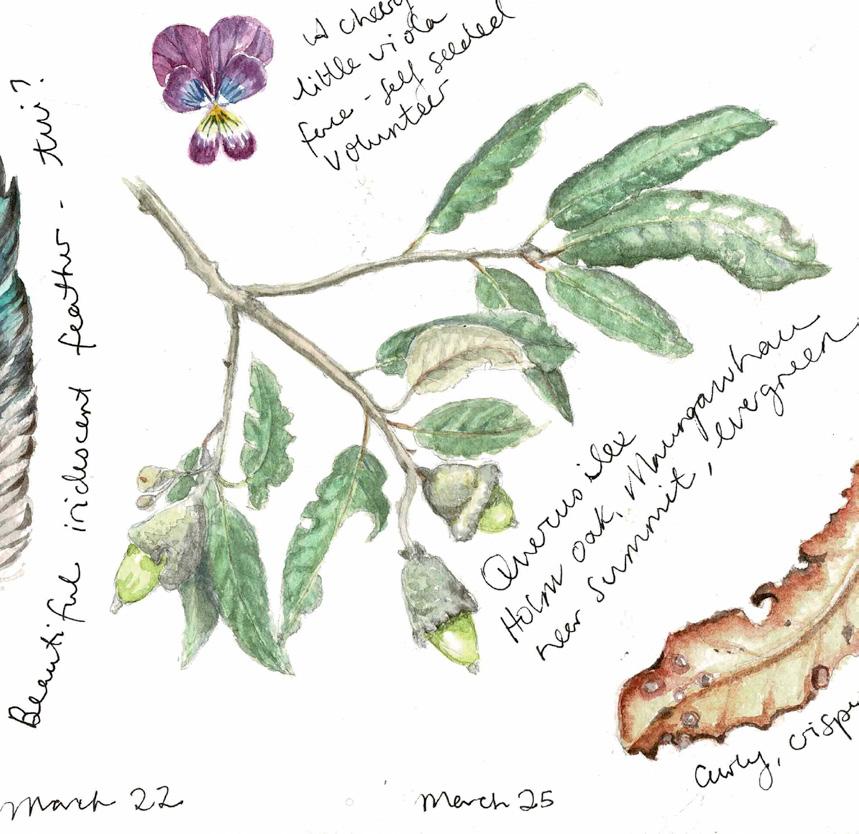 A cheery
little viola
face - self seeded
volunteer
Beautiful iridescent feather - tui?
Quercus ilex
Holm oak, Maungawhau
near summit, evergreen
curly, crispy
March 22
March 25